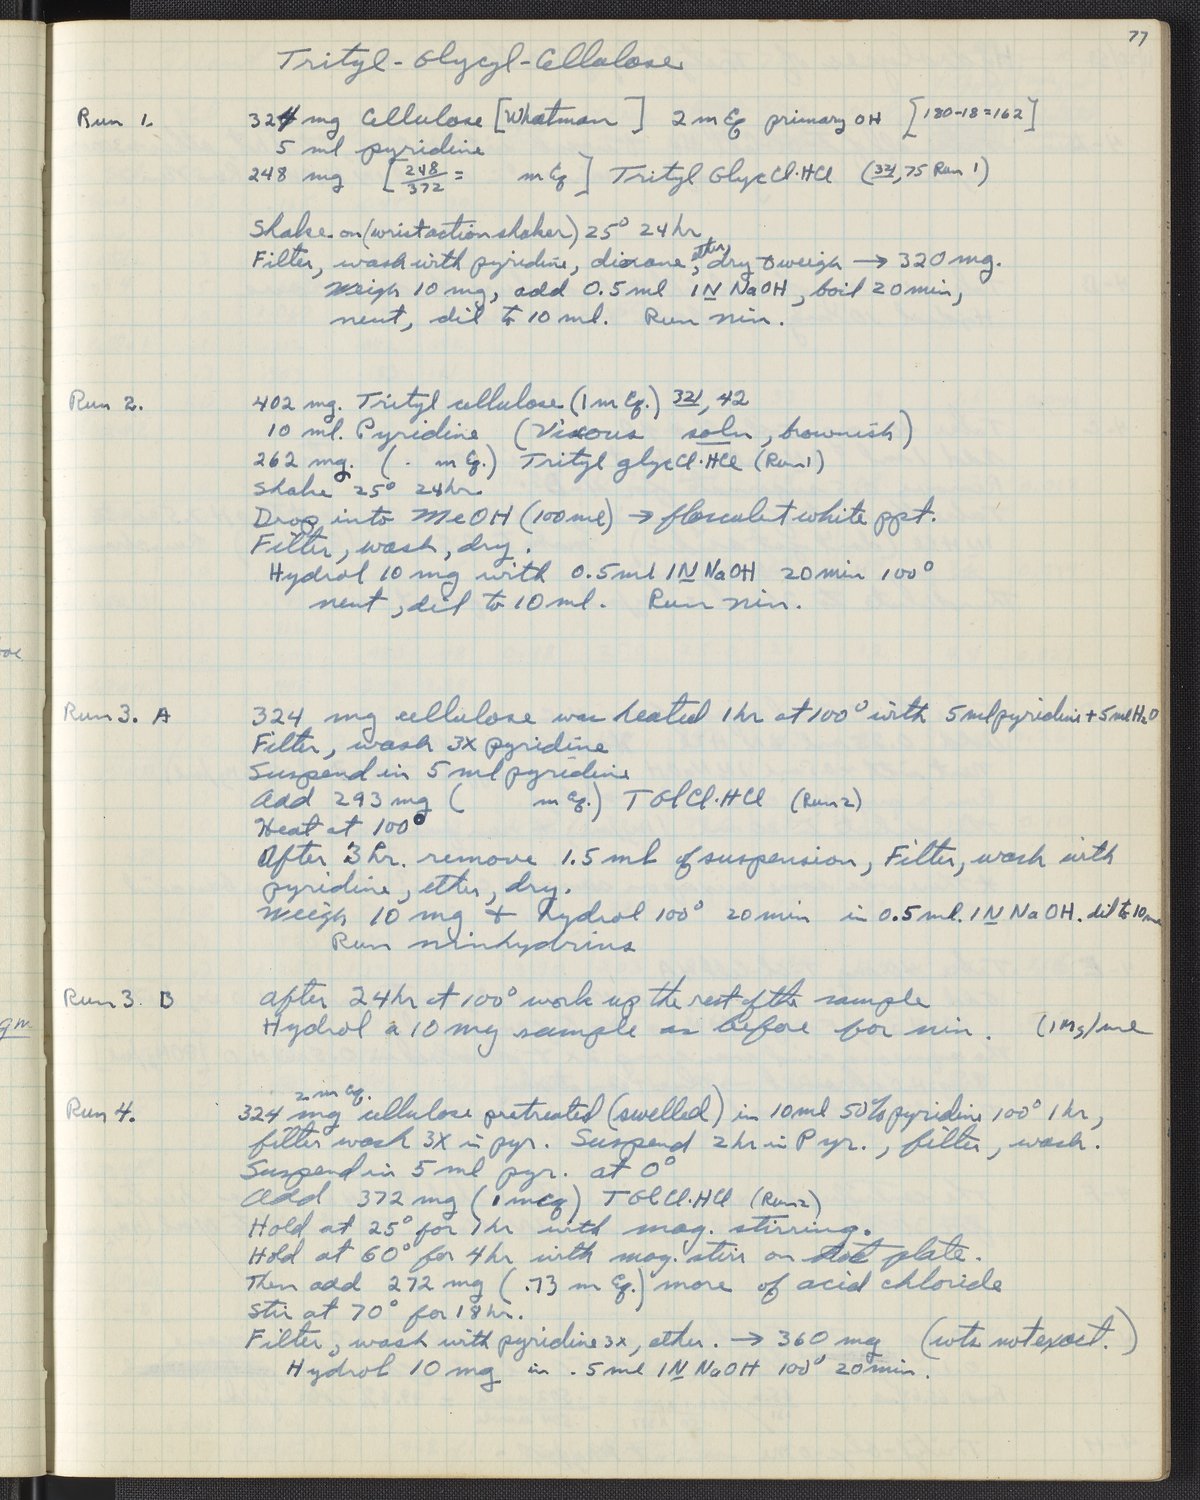 77
Trityl-Glycyl-Cellulose
Run 1. 324 mg Cellulose [Whatman ] 2 mEq primary OH [180-18=162]
5 ml pyridine
248 mg [248/372 = mEq] Trityl GlycCl·HCl (321, 75 Run 1)
Shake on (wrist action shaker) 25° 24 hr
Filter, wash with pyridine, dioxane, ether, dry & weigh → 320 mg.
Weigh 10 mg, add 0.5 ml 1N NaOH, boil 20 min,
neut, dil to 10 ml. Run nin.
Run 2. 402 mg. Trityl cellulose (1 mEq.) 321, 42
10 ml. Pyridine (Viscous soln, brownish)
262 mg. (. mEq.) Trityl glycCl·HCl (Run 1)
Shake 25° 24 hr
Drop into MeOH (100 ml) → flocculent white ppt.
Filter, wash, dry.
Hydrol 10 mg with 0.5 ml 1N NaOH 20 min 100°
neut, dil to 10 ml. Run nin.
Run 3. A 324 mg cellulose was heated 1 hr at 100° with 5 ml pyridine + 5 ml H2O
Filter, wash 3x pyridine
Suspend in 5 ml pyridine
Add 293 mg ( mEq.) TGlCl·HCl (Run 2)
Heat at 100°
After 3 hr. remove 1.5 ml of suspension, Filter, wash with
pyridine, ether, dry.
Weigh 10 mg + hydrol 100° 20 min in 0.5 ml. 1N NaOH. dil to 10 ml
Run ninhydrins
Run 3 B After 24 hr at 100° work up the rest of the sample
Hydrol a 10 mg sample as before for nin. (1 mg/ml
Run 4. 2 mEq.
324 mg cellulose pretreated (swelled) in 10 ml 50% pyridine 100° 1 hr,
filter wash 3X in pyr. Suspend 2 hr in Pyr., filter, wash.
Suspend in 5 ml pyr. at 0°
Add 372 mg (1 meq) TGlCl·HCl (Run 2)
Hold at 25° for 1 hr with mag. stirring.
Hold at 60° for 4 hr with mag. stirr on hot plate.
Then add 272 mg (.73 mEq.) more of acid chloride
Stir at 70° for 18 hr.
Filter, wash with pyridine 3x, ether. → 360 mg (wts not exact.)
Hydrol 10 mg in .5 ml 1N NaOH 100° 20 min.
gm